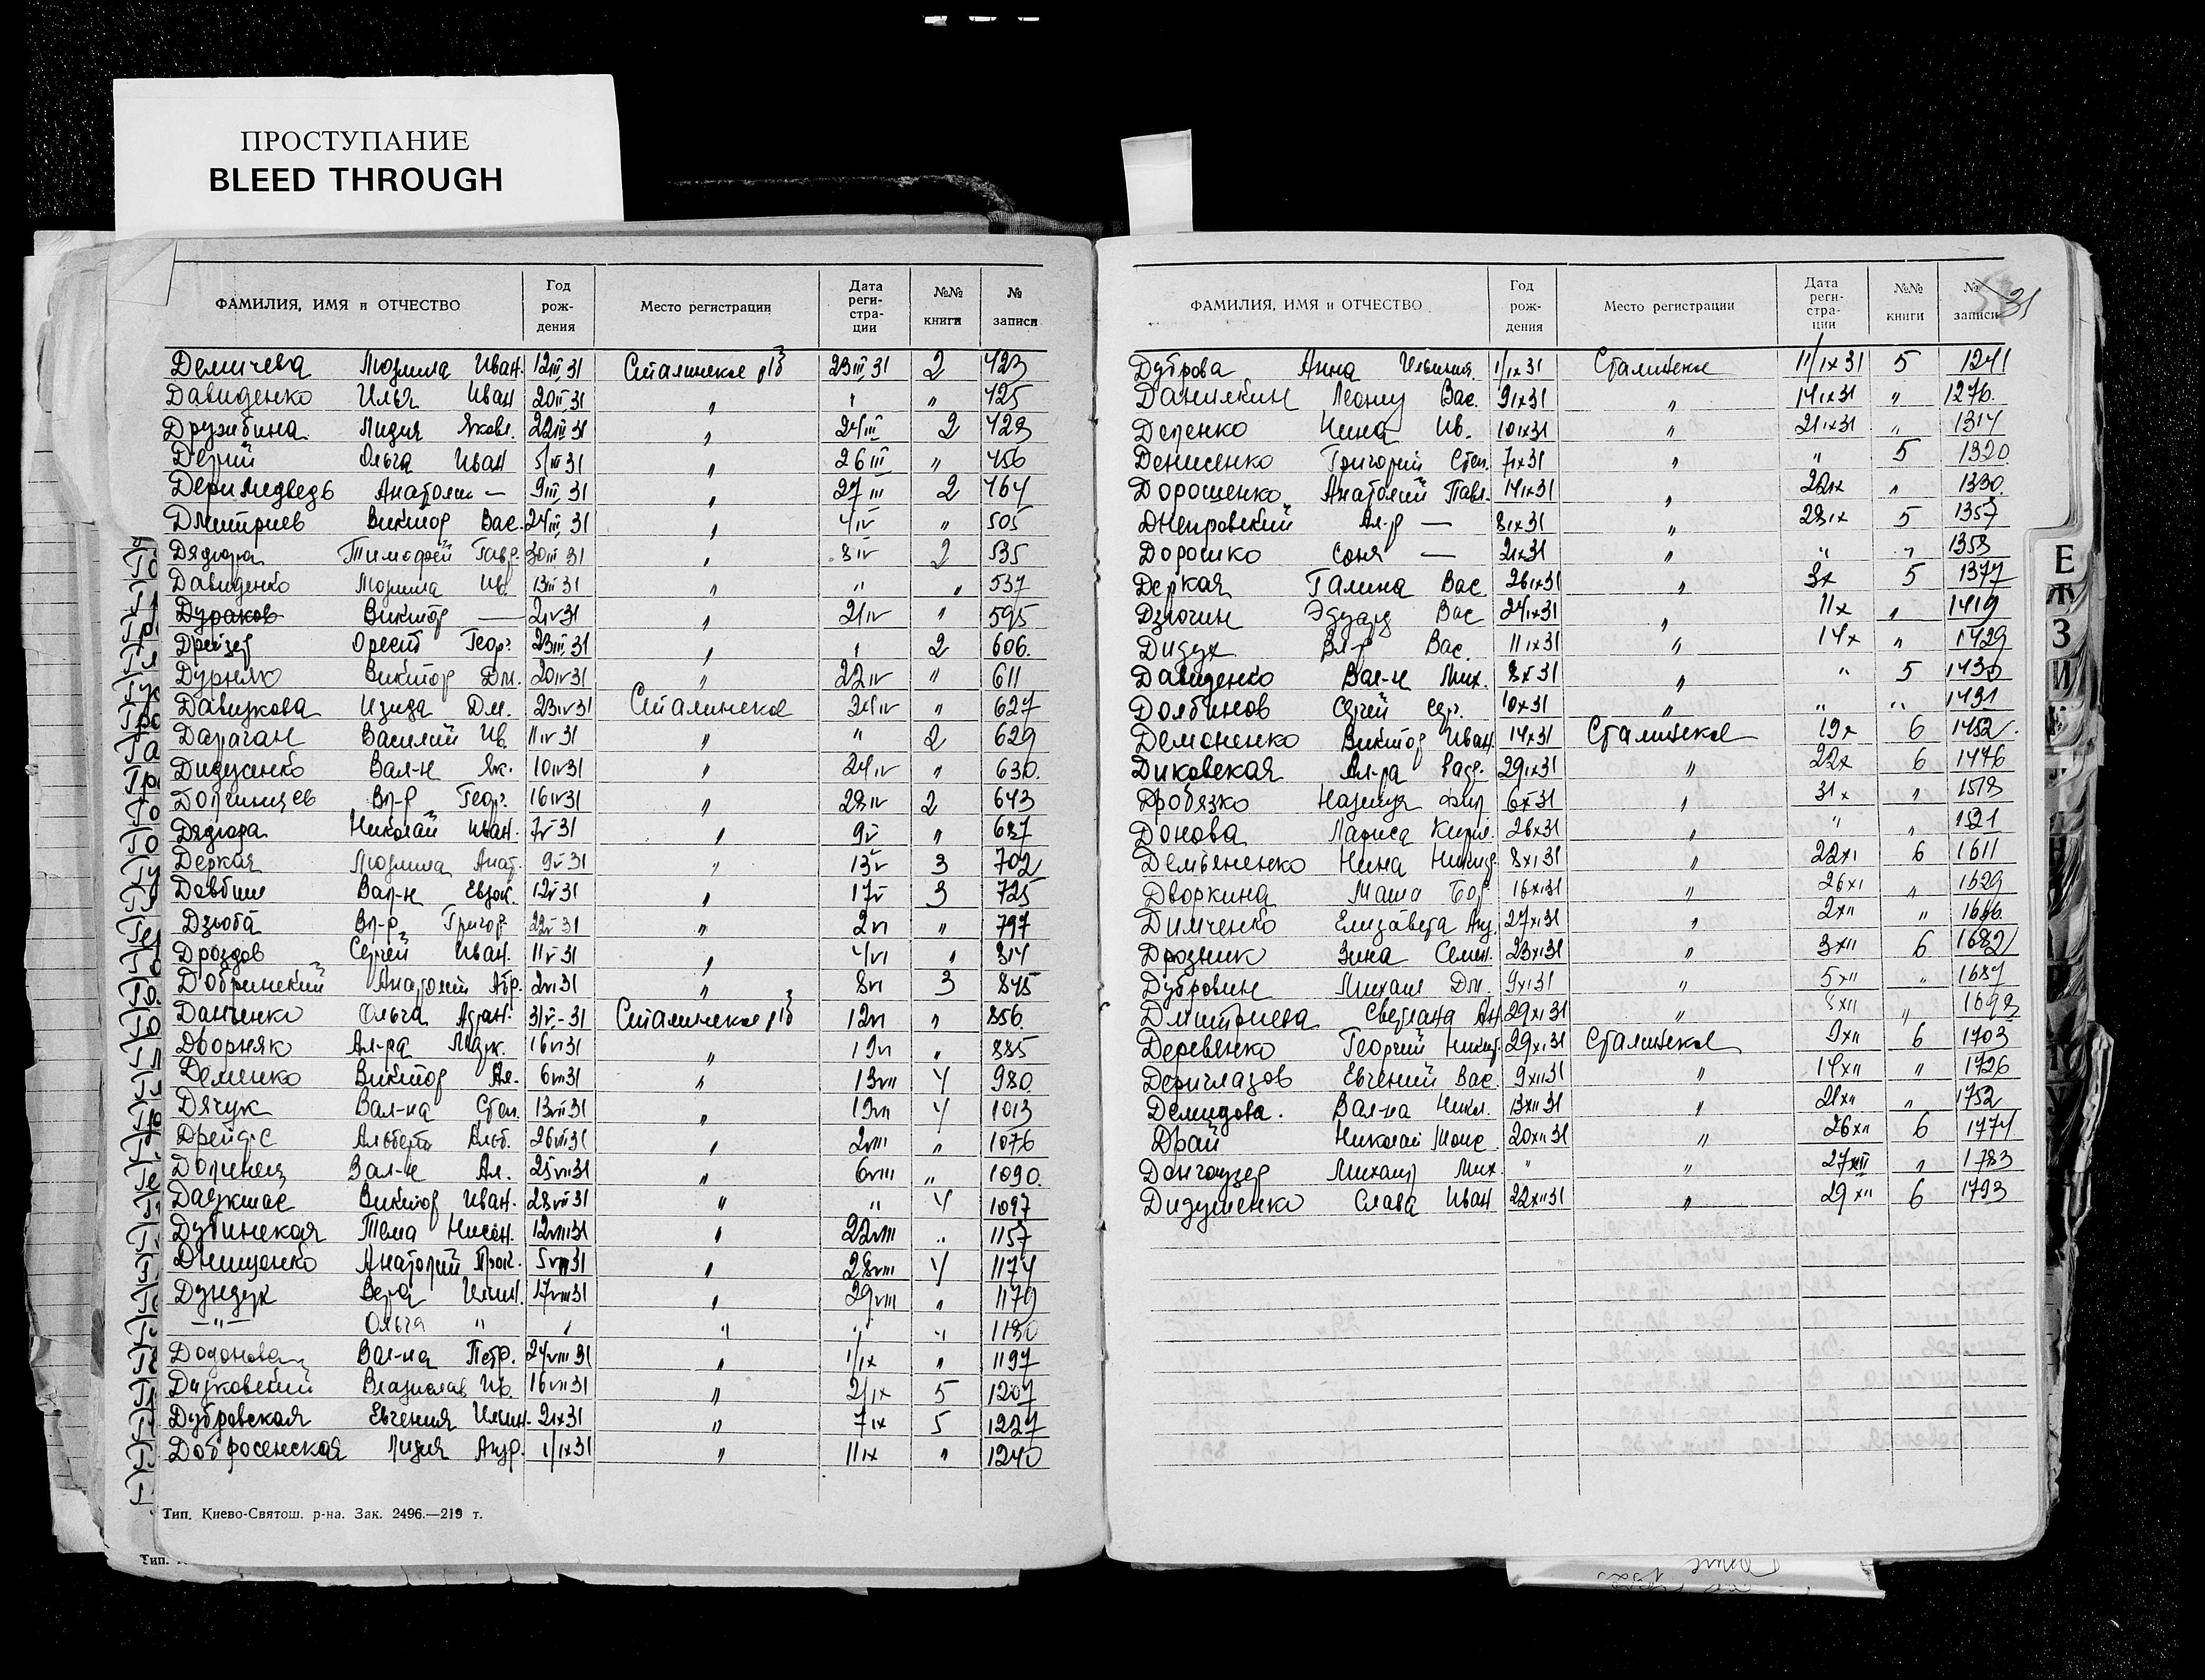 ПРОСТУПАНИЕ
BLEED THROUGH
ФАМИЛИЯ, ИМЯ и ОТЧЕСТВО Год рож-дения Место регистрации Дата реги-стра-ции №№ книги № записи
Демичева Людмила Иван. 12 III 31 Сталинское 23 III 31 2 423
Давиденко Илья Иван 20 III 31 " " " 425
Дружбина Лидия Яковл. 22 III 31 " 24 III 2 429
Ольга Иван 5/III 31 " 26 III " 456
Деримедведь Анатолий — 9 III 31 " 27 III 2 464
Дмитриев Виктор Вас. 24 III 31 " 4/IV " 505
Дядюра Тимофей Гавр. 30 III 31 " 8 IV 2 535
Давиденко Людмила Ив. 13 III 31 " " " 537
Дураков Виктор — 2 IV 31 " 21 IV " 595
Дрейзер Орест Георг. 23 III 31 " " 2 606.
Дурняк Виктор Дм. 20 IV 31 " 22 IV " 611
Давидкова Изида Дм. 23 IV 31 Сталинское 24 IV " 627
Дараган Василий Ив. 11 IV 31 " " 2 629
Вал-н Як. 10 IV 31 " 24 IV " 630.
Вл-р Георг. 16 IV 31 " 28 IV 2 643
Дядюра Николай Иван. 7 V 31 " 9 V " 687
Деркая Людмила Анат. 9 V 31 " 13 V 3 702
Довбиш Вал-н Евдок. 12 V 31 " 17 V 3 725
Дзюба Вл-р Григор. 22 V 31 " 2 VI " 797
Дроздов Сергей Иван. 11 V 31 " 4/VI " 814
Добринский Анатолий Абр. 2 VI 31 " 8 VI 3 845
Данченко Ольга 31 V - 31 Сталинское 12 VI " 856.
Дворняк Ал-ра Марк. 16 VI 31 " 19 VI " 885
Деменко Виктор Ал. 6 VII 31 " 13 VII 4 980.
Дячук Вал-на Степ. 13 VII 31 " 19 VII 4 1013
Дрейфс Альберт Альб. 26 VII 31 " 2 VIII " 1076
Долинец Вал-н Ал. 25 VII 31 " 6 VIII " 1090.
Даукшас Виктор Иван. 28 VII 31 " " 4 1097
Дубинская Тема Нисен. 12 VIII 31 " 22 VIII " 1157
Днищенко Анатолий Прок. 5 VIII 31 " 28 VIII 4 1174
Дундук Вера Ильин. 17 VIII 31 " 29 VIII " 1179
— " — Ольга " " " " " 1180
Додонова Вал-на Петр. 24 VIII 31 " 1/IX " 1197
Владислав Ив. 16 VII 31 " 2/IX 5 1207
Дубровская Евгения Ильин. 2 IX 31 " 7 IX 5 1227
Добросенская Лидия Андр. 1/IX 31 " 11 IX " 1240
Тип. Киево-Святош. р-на. Зак. 2496.—219 т.
Тип.
31
ФАМИЛИЯ, ИМЯ и ОТЧЕСТВО Год рож-дения Место регистрации Дата реги-стра-ции №№ книги № записи
Дуброва Анна Ильинич. 1/IX 31 Сталинское 11/IX 31 5 1241
Данилкин Леонид Вас. 9 IX 31 " 14 IX 31 " 1276.
Деленко Нина Ив. 10 IX 31 " 21 IX 31 " 1314
Денисенко Григорий Степ. 7 IX 31 " " 5 1320.
Дорошенко Анатолий Павл. 14 IX 31 " 22 IX " 1330.
Днепровский Ал-р — 8 IX 31 " 28 IX 5 1357
Дорошко Соня — 2 IX 31 " " " 1358
Деркая Галина Вас. 26 IX 31 " 3 X 5 1377
Дзюгин Эдуард Вас 24 IX 31 " 11 X " 1419
Дидух Вл-р Вас. 11 IX 31 " 14 X " 1429
Давиденко Вал-н Мих. 8 X 31 " " 5 1430
Долбинов Сергей Серг. 10 X 31 " " " 1431
Демоненко Виктор Иван. 14 X 31 Сталинское 19 X 6 1452.
Диковская Ал-ра 29 IX 31 " 22 X 6 1476
Дробязко Надежда Фил 6 X 31 " 31 X " 1518
Донова Лариса Кирил. 26 X 31 " " " 1521
Демьяненко Нина Никиф. 8 XI 31 " 22 XI 6 1611
Дворкина Маша Бор 16 XI 31 " 26 XI " 1629
Димченко Елизавета Анд. 27 XI 31 " 2 XII " 1646.
Дрозник Зина Семен. 23 XI 31 " 3 XII 6 1682
Дубровин Михаил Дм. 9 XI 31 " 5 XII " 1687
Дмитриева Светлана Ан 29 XI 31 " 8 XII " 1698
Деревенко Георгий Никит. 29 XI 31 Сталинское 9 XII 6 1703
Дериглазов Евгений Вас. 9 XII 31 " 14 XII " 1726
Демидова. Вал-на Никл. 13 XII 31 " 21 XII " 1752
Драй Николай Моис. 20 XII 31 " 26 XII 6 1774
Донгаузер Михаил Мих. " " 27 XII " 1783
Дидушенко Слава Иван 22 XII 31 " 29 XII 6 1793
Е
Ж
З
И